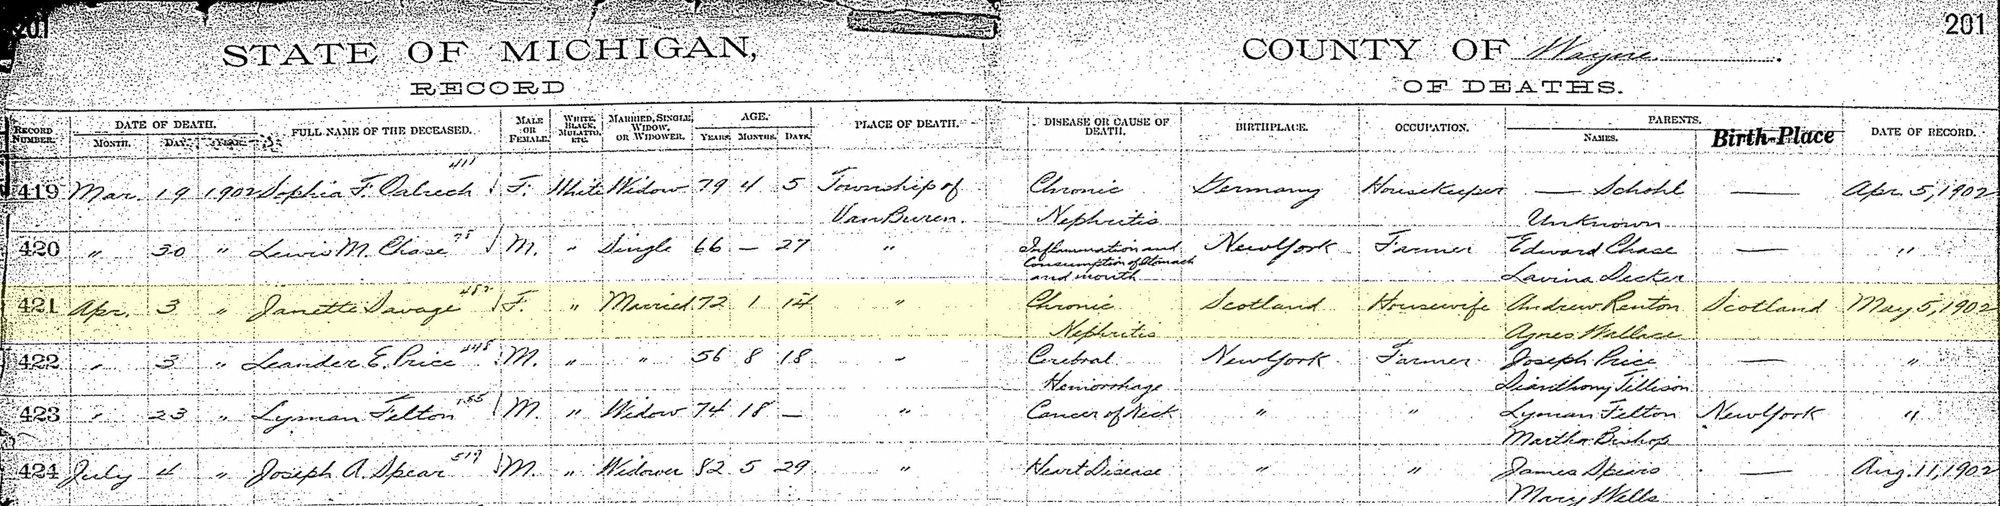 201 201
STATE OF MICHIGAN, COUNTY OF Wayne.
RECORD OF DEATHS.
RECORD NUMBER. DATE OF DEATH. MONTH. DAY. YEAR. FULL NAME OF THE DECEASED. MALE OR FEMALE. WHITE, BLACK, MULATTO, ETC. MARRIED, SINGLE, WIDOW, OR WIDOWER. AGE. YEARS. MONTHS. DAYS. PLACE OF DEATH. DISEASE OR CAUSE OF DEATH. BIRTHPLACE. OCCUPATION. PARENTS. NAMES. Birth-Place DATE OF RECORD.
419 Mar. 19 1902 Sophia F. 411 F. White Widow 79 4 5 Township of Chronic Germany Housekeeper — Schohl — Apr. 5, 1902
Van Buren. Nephritis Unknown
420 " 30 " Lewis M. Chase 75 M. " Single 66 — 27 " Inflammation and New York Farmer Edward Chase — "
Consumption of Stomach
and mouth Lavina Decker
421 Apr. 3 " Janette Savage 482 F. " Married 72 1 14 " Chronic Scotland Housewife Andrew Renton Scotland May 5, 1902
Nephritis Agnes Wallace
422 " 3 " Leander E. Price M. " " 56 8 18 " Cerebral New York Farmer Joseph Price — "
Hemorrhage Tillison
423 " 23 " Lyman Felton 155 M. " Widow 74 18 — " Cancer of Neck " " Lyman Felton New York "
Martha Bishop
424 July 4 " Joseph A. Spear 519 M. " Widower 82 5 29 " Heart Disease " " James Spears — Aug. 11, 1902
Mary Wells